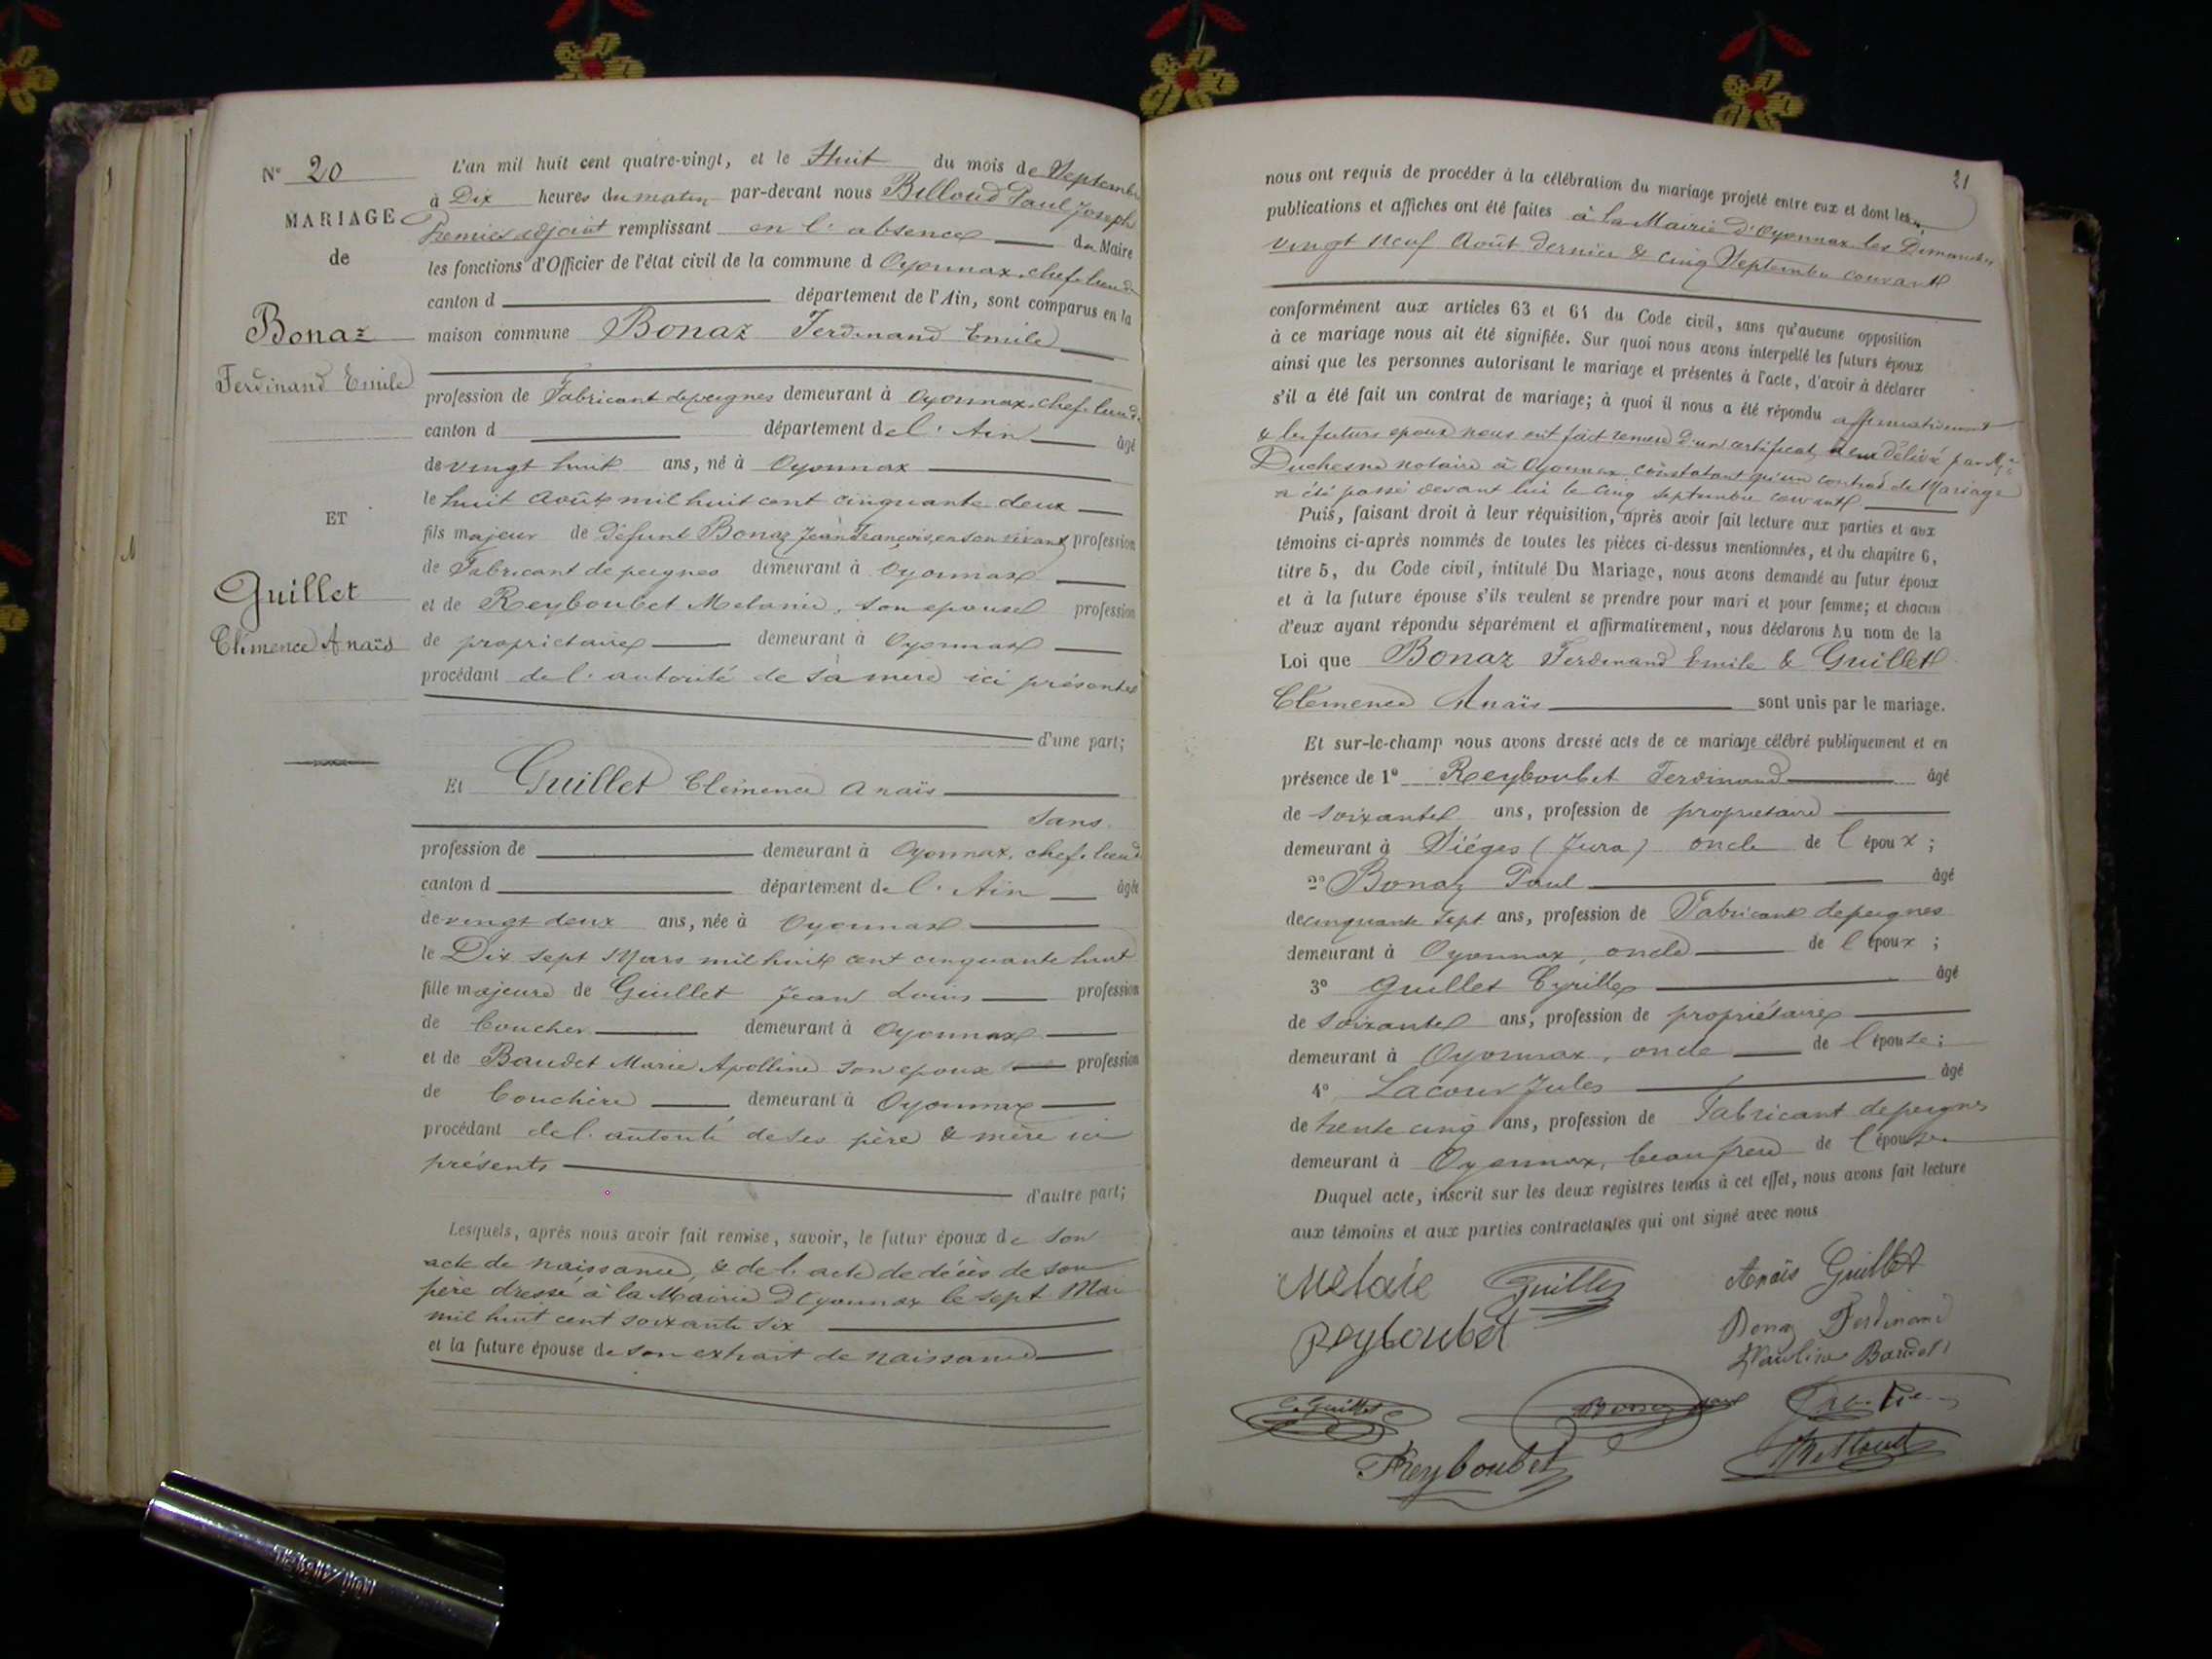 N° 20
MARIAGE
de
Bonaz
Ferdinand Emile
ET
Guillet
Clémence Anaïs
L'an mil huit cent quatre-vingt, et le Huit du mois de Septembre
à Dix heures du matin par-devant nous Billoud Paul Joseph
Premier adjoint remplissant en l'absence du Maire
les fonctions d'Officier de l'état civil de la commune d Oyonnax, chef-lieu de
canton d département de l'Ain, sont comparus en la
maison commune Bonaz Ferdinand Emile
profession de Fabricant de peignes demeurant à Oyonnax, chef-lieu de
canton d département de l'Ain âgé
de vingt huit ans, né à Oyonnax
le huit Août mil huit cent cinquante deux
fils majeur de défunt Bonaz Jean François, en son vivant profession
de Fabricant de peignes demeurant à Oyonnax
et de Reyboubet Melanie, son epouse profession
de proprietaire demeurant à Oyonnax
procédant de l'autorité de sa mere ici présente
d'une part;
Et Guillet Clémence Anaïs
sans
profession de demeurant à Oyonnax, chef-lieu de
canton d département de l'Ain âgée
de vingt deux ans, née à Oyonnax
le Dix sept Mars mil huit cent cinquante huit
fille majeure de Guillet Jean Louis profession
de boucher demeurant à Oyonnax
et de Baudet Marie Apolline son epouse profession
de bouchère demeurant à Oyonnax
procédant de l'autorité de ses père & mère ici
présents
d'autre part;
Lesquels, après nous avoir fait remise, savoir, le futur époux de son
acte de naissance, & de l'acte de décès de son
père dressé à la Mairie d'Oyonnax le sept Mai
mil huit cent soixante six
et la future épouse de son extrait de naissance
21
nous ont requis de procéder à la célébration du mariage projeté entre eux et dont les
publications et affiches ont été faites à la Mairie d'Oyonnax les Dimanches
vingt neuf Août dernier & cinq Septembre courant
conformément aux articles 63 et 64 du Code civil, sans qu'aucune opposition
à ce mariage nous ait été signifiée. Sur quoi nous avons interpellé les futurs époux
ainsi que les personnes autorisant le mariage et présentes à l'acte, d'avoir à déclarer
s'il a été fait un contrat de mariage; à quoi il nous a été répondu affirmativement
& les futurs epoux nous ont fait remise d'un certificat à eux délivré par Me
Duchesne notaire à Oyonnax constatant qu'un contrat de Mariage
a été passé devant lui le cinq septembre courant
Puis, faisant droit à leur réquisition, après avoir fait lecture aux parties et aux
témoins ci-après nommés de toutes les pièces ci-dessus mentionnées, et du chapitre 6,
titre 5, du Code civil, intitulé Du Mariage, nous avons demandé au futur époux
et à la future épouse s'ils veulent se prendre pour mari et pour femme; et chacun
d'eux ayant répondu séparément et affirmativement, nous déclarons Au nom de la
Loi que Bonaz Ferdinand Emile & Guillet
Clémence Anaïs sont unis par le mariage.
Et sur-le-champ nous avons dressé acte de ce mariage célébré publiquement et en
présence de 1° Reyboubet Ferdinand âgé
de soixante ans, profession de propriétaire
demeurant à Siéges (Jura) oncle de l'époux;
2° Bonaz Paul âgé
de cinquante sept ans, profession de Fabricant de peignes
demeurant à Oyonnax, oncle de l'époux;
3° Guillet Cyrille âgé
de soixante ans, profession de propriétaire
demeurant à Oyonnax, oncle de l'épouse;
4° Lacour Jules âgé
de trente cinq ans, profession de Fabricant de peignes
demeurant à Oyonnax, beau frere de l'épouse
Duquel acte, inscrit sur les deux registres tenus à cet effet, nous avons fait lecture
aux témoins et aux parties contractantes qui ont signé avec nous
Melaie Guillet Anaïs Guillet
Reyboubet Bonaz Ferdinand
Baudet
C. Guillet Bonaz Paul
F Reyboubet Billoud